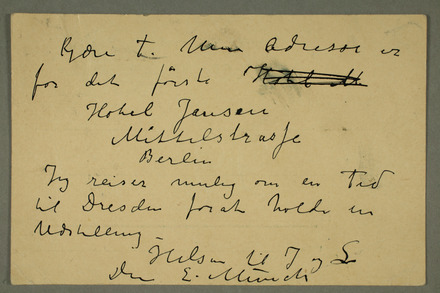 Kjære t. Min Adresse er
for det første
Hotel Jansen
Mittelstrasse
Berlin
Jeg reiser mulig om en Tid
til Dresden forat holde en
Udstilling –
Hilsen til J og L
Din E. Munch